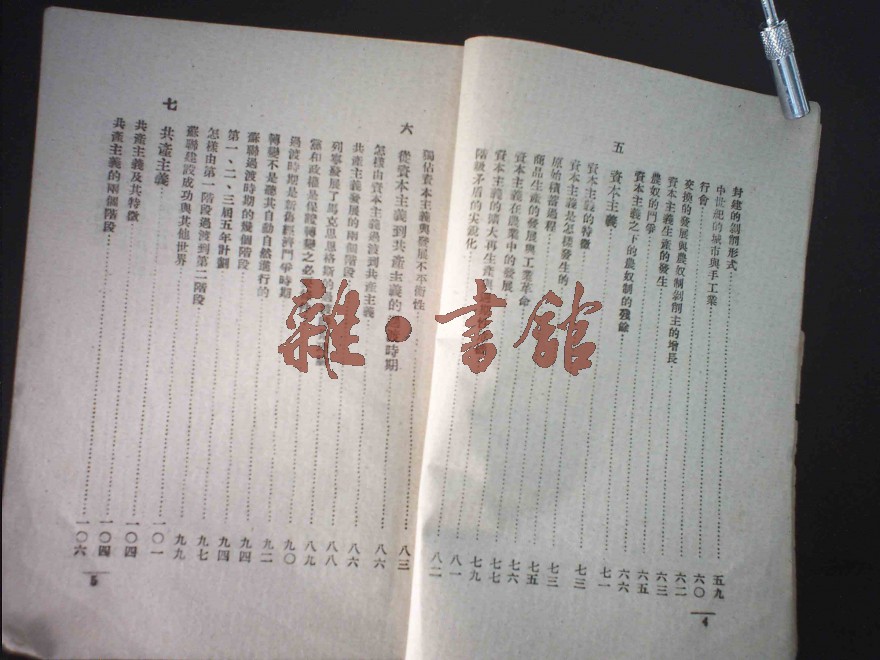 封建的剝削形式……五九
中世紀的城市與手工業……六〇
行會……六二
交換的發展與農奴制剝削主的增長……六三
資本主義生產的發生……六五
農奴的鬥爭……六六
資本主義之下的農奴制的殘餘……七一
五 資本主義……七三
資本主義的特徵……七三
資本主義是怎樣發生的……七五
原始積蓄過程……七六
商品生產的發展與工業革命……七七
資本主義在農業中的發展……七九
資本主義的擴大再生產與……八一
階級矛盾的尖銳化……八二
4
獨佔資本主義與發展不平衡性……八三
六 從資本主義到共產主義的過渡時期……八六
怎樣由資本主義過渡到共產主義……八六
共產主義發展的兩個階段……八八
列寧發展了馬克思恩格斯的……八九
黨和政權是保證轉變之必……九〇
過渡時期是新舊經濟鬥爭時期……九二
轉變不是聽其自動自然進行的……九四
蘇聯過渡時期的幾個階段……九四
第一、二、三屆五年計劃……九七
怎樣由第一階段過渡到第二階段……九九
蘇聯建設成功與其他世界……一〇一
七 共產主義……一〇四
共產主義及其特徵……一〇四
共產主義的兩個階段……一〇六
5
雜·書館